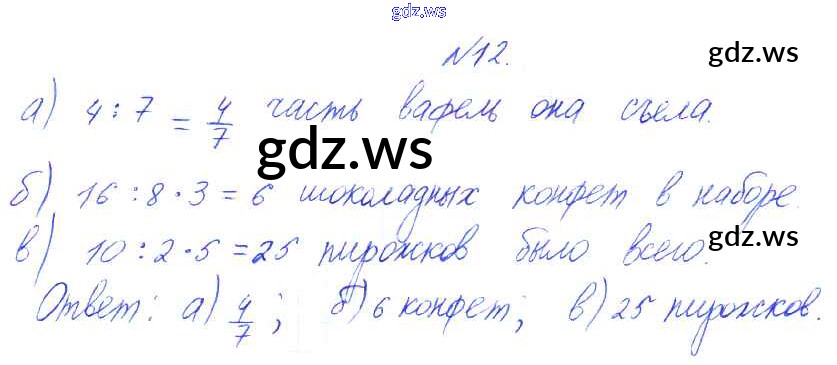 gdz.ws
№12.
gdz.ws
а) 4 : 7 = 4/7 часть вафель она съела.
gdz.ws
б) 16 : 8 · 3 = 6 шоколадных конфет в наборе.
gdz.ws
в) 10 : 2 · 5 = 25 пирожков было всего.
Ответ: а) 4/7; б) 6 конфет; в) 25 пирожков.